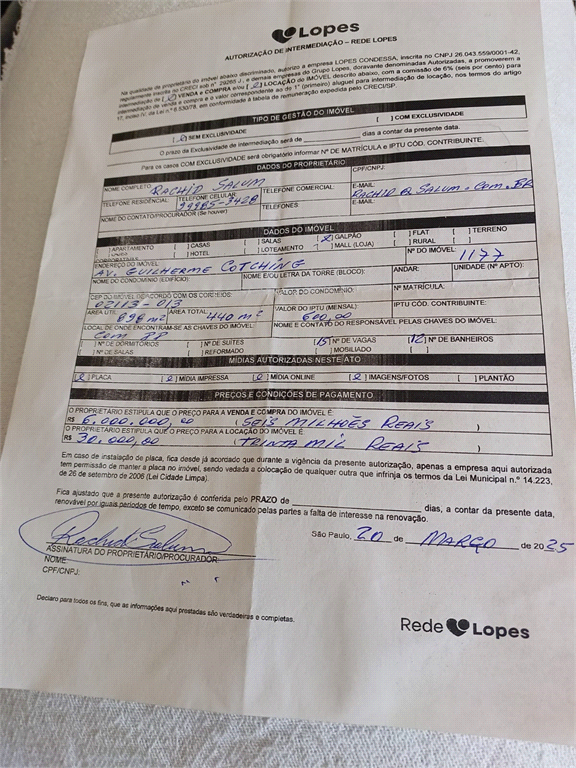 Lopes
AUTORIZAÇÃO DE INTERMEDIAÇÃO – REDE LOPES
Na qualidade de proprietária do imóvel abaixo discriminado, autorizo a empresa LOPES CONDESSA, inscrita no CNPJ 26.043.559/0001-42,
regularmente inscrita no CRECI sob nº 29265 J, e demais empresas do Grupo Lopes, doravante denominadas Autorizadas, a promoverem a
intermediação de VENDA E COMPRA e/ou LOCAÇÃO do IMÓVEL descrito abaixo, com a comissão de 6% (seis por cento) para
intermediação de venda e compra e o valor correspondente ao do 1º (primeiro) aluguel para intermediação de locação, nos termos do artigo
17, inciso IV, da Lei n.º 6.530/78, em conformidade à tabela de remuneração expedida pelo CRECI/SP.
TIPO DE GESTÃO DO IMÓVEL
SEM EXCLUSIVIDADE [ ] COM EXCLUSIVIDADE
O prazo da Exclusividade de intermediação será de dias a contar da presente data.
Para os casos COM EXCLUSIVIDADE será obrigatório informar Nº DE MATRÍCULA e IPTU CÓD. CONTRIBUINTE.
DADOS DO PROPRIETÁRIO
NOME COMPLETO RACHID SALUM CPF/CNPJ:
TELEFONE RESIDENCIAL TELEFONE CELULAR: 99985-3428 TELEFONE COMERCIAL E-MAIL: RACHID@SALUM.COM.BR
NOME DO CONTATO/PROCURADOR (Se houver) TELEFONES E-MAIL:
DADOS DO IMÓVEL
[ ] APARTAMENTO [ ] CASAS [ ] SALAS [X] GALPÃO [ ] FLAT [ ] TERRENO
CORPORATIVAS [ ] HOTEL LOTEAMENTO MALL (LOJA) [ ] RURAL [ ]
ENDEREÇO DO IMÓVEL Nº DO IMÓVEL: 1177
AV. GUILHERME COTCHING
NOME DO CONDOMÍNIO (EDIFÍCIO): NOME E/OU LETRA DA TORRE (BLOCO): ANDAR: UNIDADE (Nº APTO):
CEP DO IMÓVEL DE ACORDO COM OS CORREIOS: VALOR DO CONDOMÍNIO: Nº MATRÍCULA:
02113-013
ÁREA ÚTIL ÁREA TOTAL: VALOR DO IPTU (MENSAL) IPTU CÓD. CONTRIBUINTE:
896 m² 440 m² 600,00
LOCAL DE ONDE ENCONTRAM-SE AS CHAVES DO IMÓVEL NOME E CONTATO DO RESPONSÁVEL PELAS CHAVES DO IMÓVEL:
COM PP
[ ] Nº DE DORMITÓRIOS [ ] Nº DE SUÍTES [15] Nº DE VAGAS [12] Nº DE BANHEIROS
[ ] Nº DE SALAS [ ] REFORMADO [ ] MOBILIADO [ ]
MÍDIAS AUTORIZADAS NESTE ATO
PLACA MÍDIA IMPRESSA MÍDIA ONLINE IMAGENS/FOTOS [ ] PLANTÃO
PREÇOS E CONDIÇÕES DE PAGAMENTO
O PROPRIETÁRIO ESTIPULA QUE O PREÇO PARA A VENDA E COMPRA DO IMÓVEL É:
R$ 6.000.000,00 (SEIS MILHÕES REAIS)
O PROPRIETÁRIO ESTIPULA QUE O PREÇO PARA A LOCAÇÃO DO IMÓVEL É:
R$ 30.000,00 (TRINTA MIL REAIS)
Em caso de instalação de placa, fica desde já acordado que durante a vigência da presente autorização, apenas a empresa aqui autorizada
tem permissão de manter a placa no imóvel, sendo vedada a colocação de qualquer outra que infrinja os termos da Lei Municipal n.º 14.223,
de 26 de setembro de 2006 (Lei Cidade Limpa).
Fica ajustado que a presente autorização é conferida pelo PRAZO de dias, a contar da presente data,
renovável por iguais períodos de tempo, exceto se comunicado pelas partes a falta de interesse na renovação.
São Paulo, 20 de MARÇO de 2025
Rachid Salum
ASSINATURA DO PROPRIETÁRIO/PROCURADOR:
NOME
CPF/CNPJ:
Declaro para todos os fins, que as informações aqui prestadas são verdadeiras e completas.
Rede Lopes